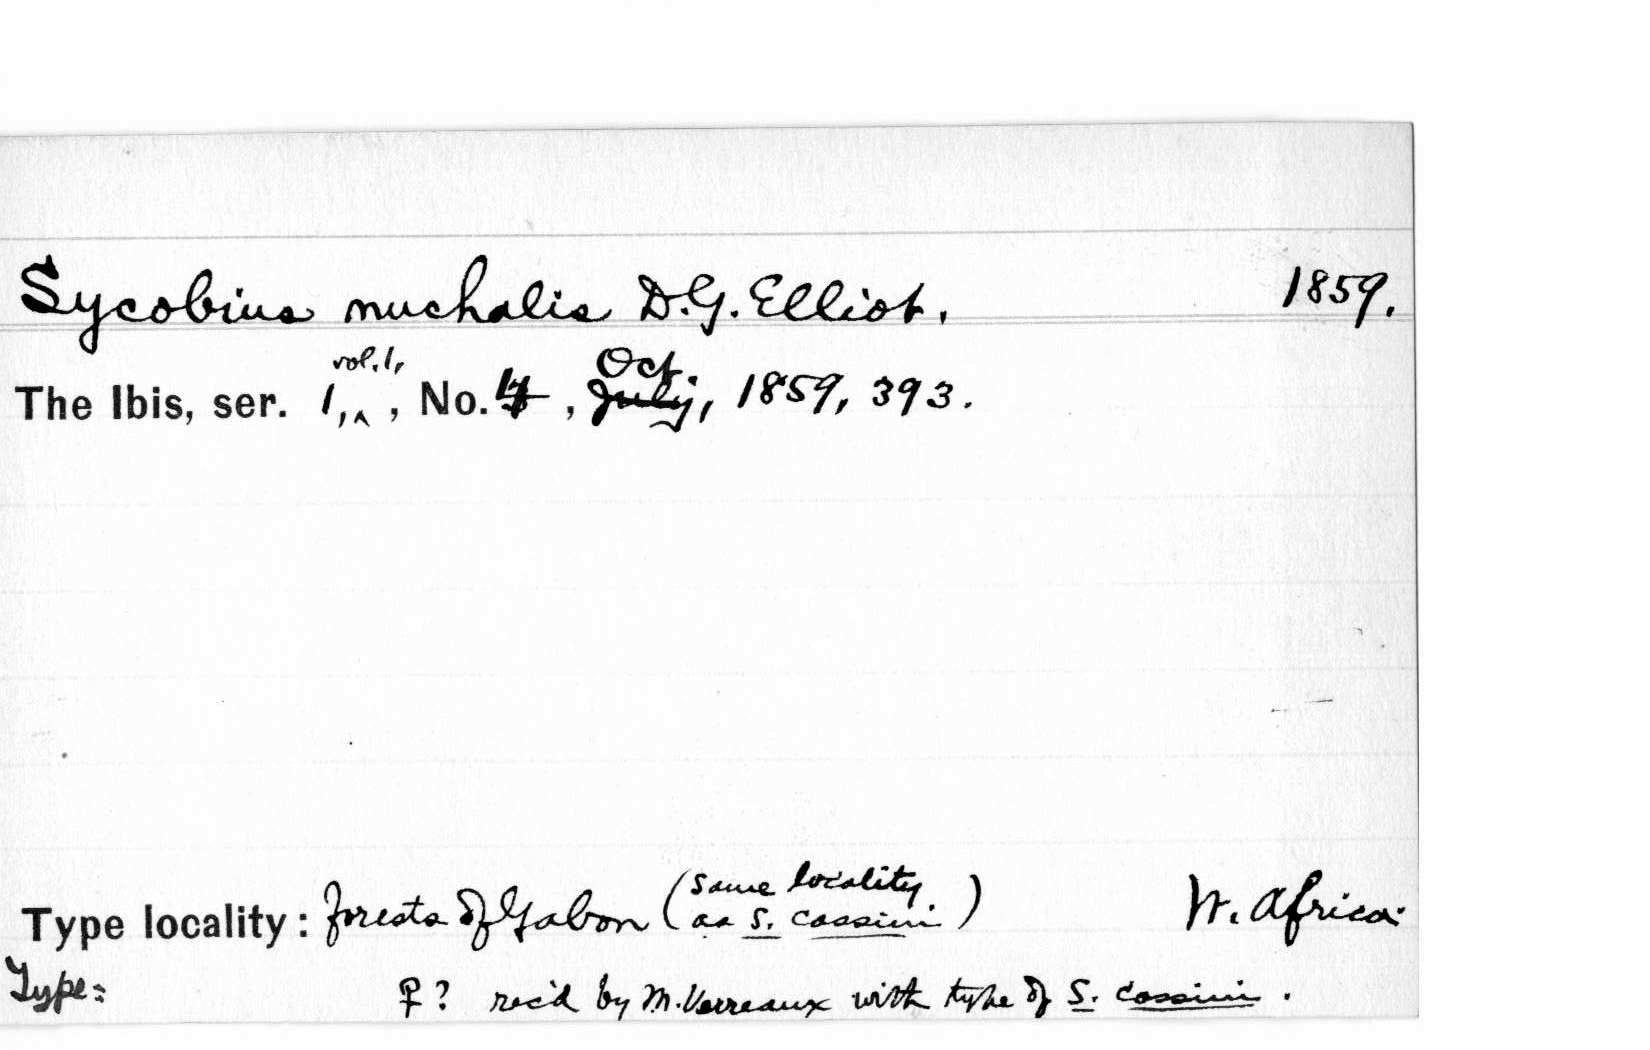 Sycobius nuchalis D.G. Elliot. 1859.
The Ibis, ser. 1, vol. 1, , No. 4, Oct. July, 1859, 393.
Type locality: forests of Gabon (same locality as S. cassini.) W. Africa.
Type: ♀? rec'd by M. Verreaux with type of S. cassini.